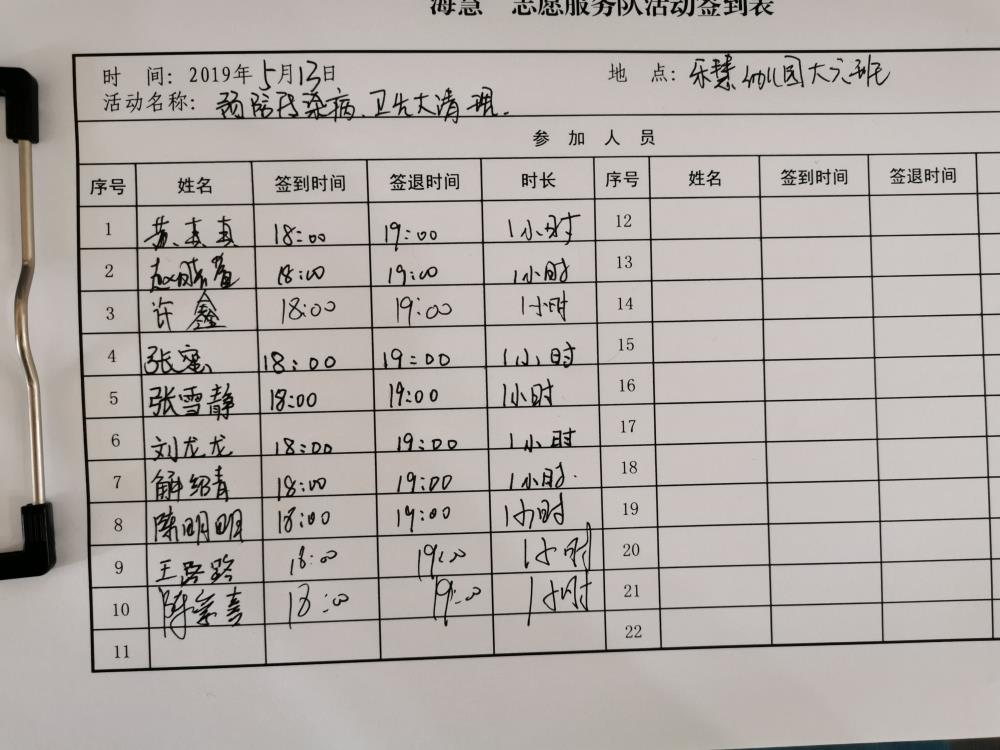 海慧 志愿服务队活动签到表
时 间: 2019年5月13日 地 点: 乐慧幼儿园大六班
活动名称: 预防传染病、卫生大清理.
参 加 人 员
序号 姓名 签到时间 签退时间 时长 序号 姓名 签到时间 签退时间
1 18:00 19:00 1小时 12
2 18:00 19:00 1小时 13
3 许鑫 18:00 19:00 1小时 14
4 张蜜 18:00 19:00 1小时 15
5 张雪静 18:00 19:00 1小时 16
6 刘龙龙 18:00 19:00 1小时 17
7 解绍青 18:00 19:00 1小时. 18
8 陈明明 18:00 19:00 1小时 19
9 王路路 18:00 19:00 1小时 20
10 18:00 19:00 1小时 21
11 22